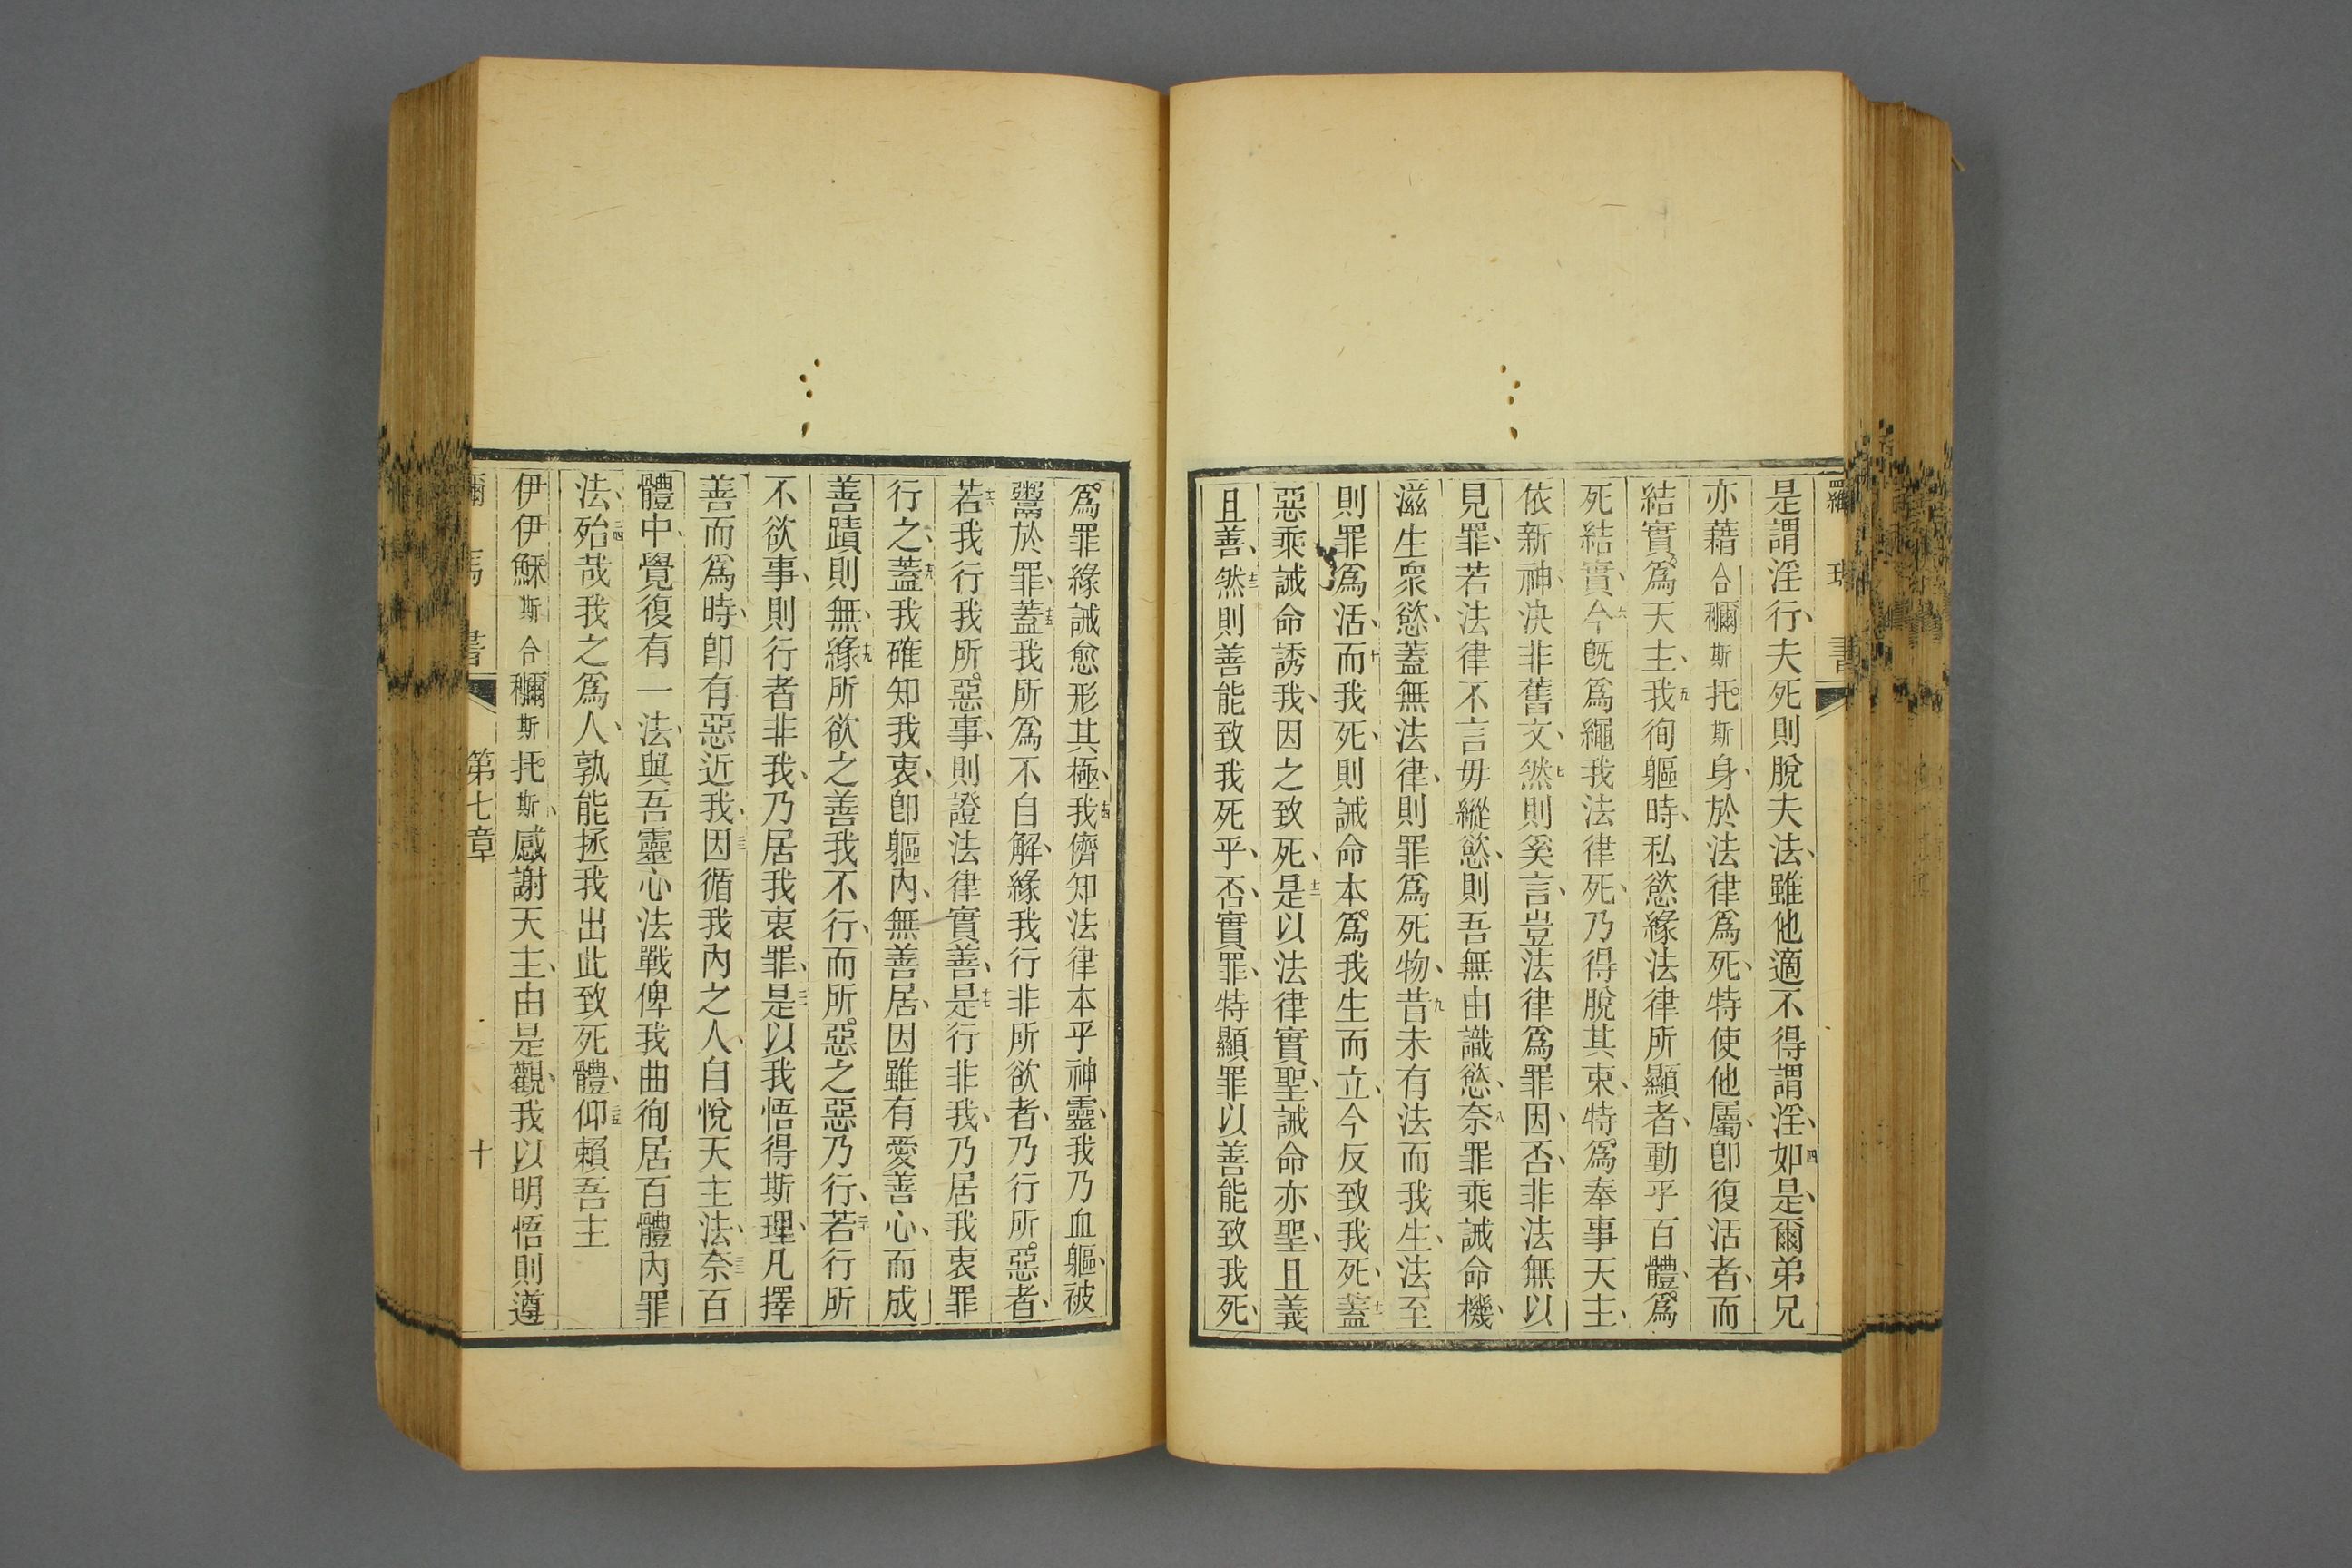 是謂淫行、夫死則脫夫法、雖他適不得謂淫、四如是、爾弟兄
亦藉合穪斯托斯身、於法律爲死、特使他屬、卽復活者、而
結實爲天主、五我徇軀時、私慾緣法律所顯者、動乎百體、爲
死結實、六今旣爲繩我法律死、乃得脫其束、特爲奉事天主、
依新神、決非舊文、七然則奚言、豈法律爲罪因、否、非法無以
見罪、若法律不言毋縱慾、則吾無由識慾、八奈罪乘誡命機、
滋生衆慾、蓋無法律、則罪爲死物、九昔未有法而我生、法至
則罪爲活、十而我死、則誡命本爲我生而立、今反致我死、十一蓋
惡乘誡命誘我、因之致死、十二是以法律實聖、誡命亦聖、且義
且善、十三然則善能致我死乎、否、實罪、特顯罪以善能致我死、
爲罪緣誡愈形其極、十四我儕知法律本乎神靈、我乃血軀、被
鬻於罪、十五蓋我所爲不自解、緣我行非所欲者、乃行所惡者、
十六若我行我所惡事、則證法律實善、十七是行非我、乃居我衷罪
行之、十八蓋我確知我衷、卽軀內、無善居、因雖有愛善心、而成
善蹟則無、十九緣所欲之善我不行、而所惡之惡乃行、二十若行所
不欲事、則行者非我、乃居我衷罪、二一是以我悟得斯理、凡擇
善而爲時、卽有惡近我、二二因循我內之人、自悅天主法、二三奈百
體中、覺復有一法、與吾靈心法戰、俾我曲徇居百體內罪
法、二四殆哉我之爲人、孰能拯我出此致死體、二五仰賴吾主
伊伊穌斯合穪斯托斯、感謝天主、由是觀、我以明悟則遵
第七章
十